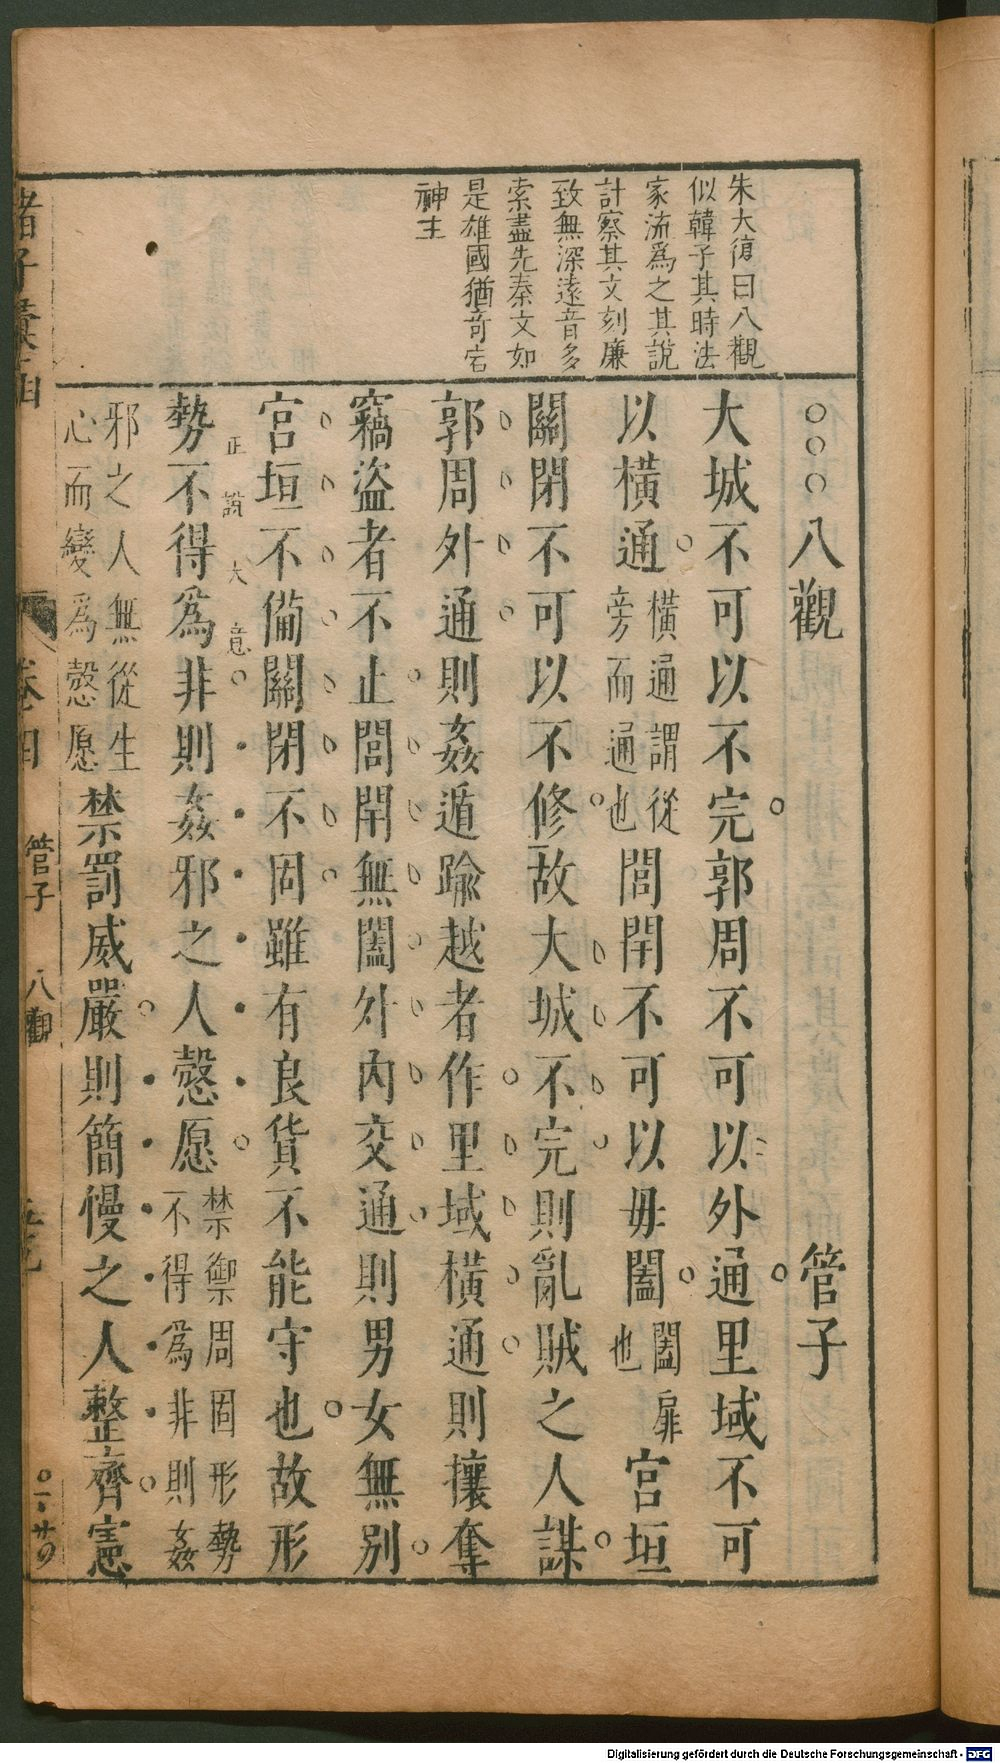 朱大復曰八觀
似韓子其時法
家流爲之其說
計察其文刻廉
致無深遠音多
索盡先秦文如
是雄國猶奇宕
神王
○○○八觀 管子
大城不可以不完郭周不可以外通里域不可
以橫通橫通謂從旁而通也閭閈不可以毋闔闔扉也宮垣
關閉不可以不修故大城不完則亂賊之人謀
郭周外通則姦遁踰越者作里域橫通則攘奪
竊盜者不止閭閈無闔外內交通則男女無別
宮垣不備關閉不固雖有良貨不能守也故形
正說大意
勢不得爲非則姦邪之人慤愿禁禦周固形勢不得爲非則姦
邪之人無從生心而變爲慤愿禁罰威嚴則簡慢之人整齊憲
諸子彙函 卷四 管子 八觀
Digitalisierung gefördert durch die Deutsche Forschungsgemeinschaft - DFG